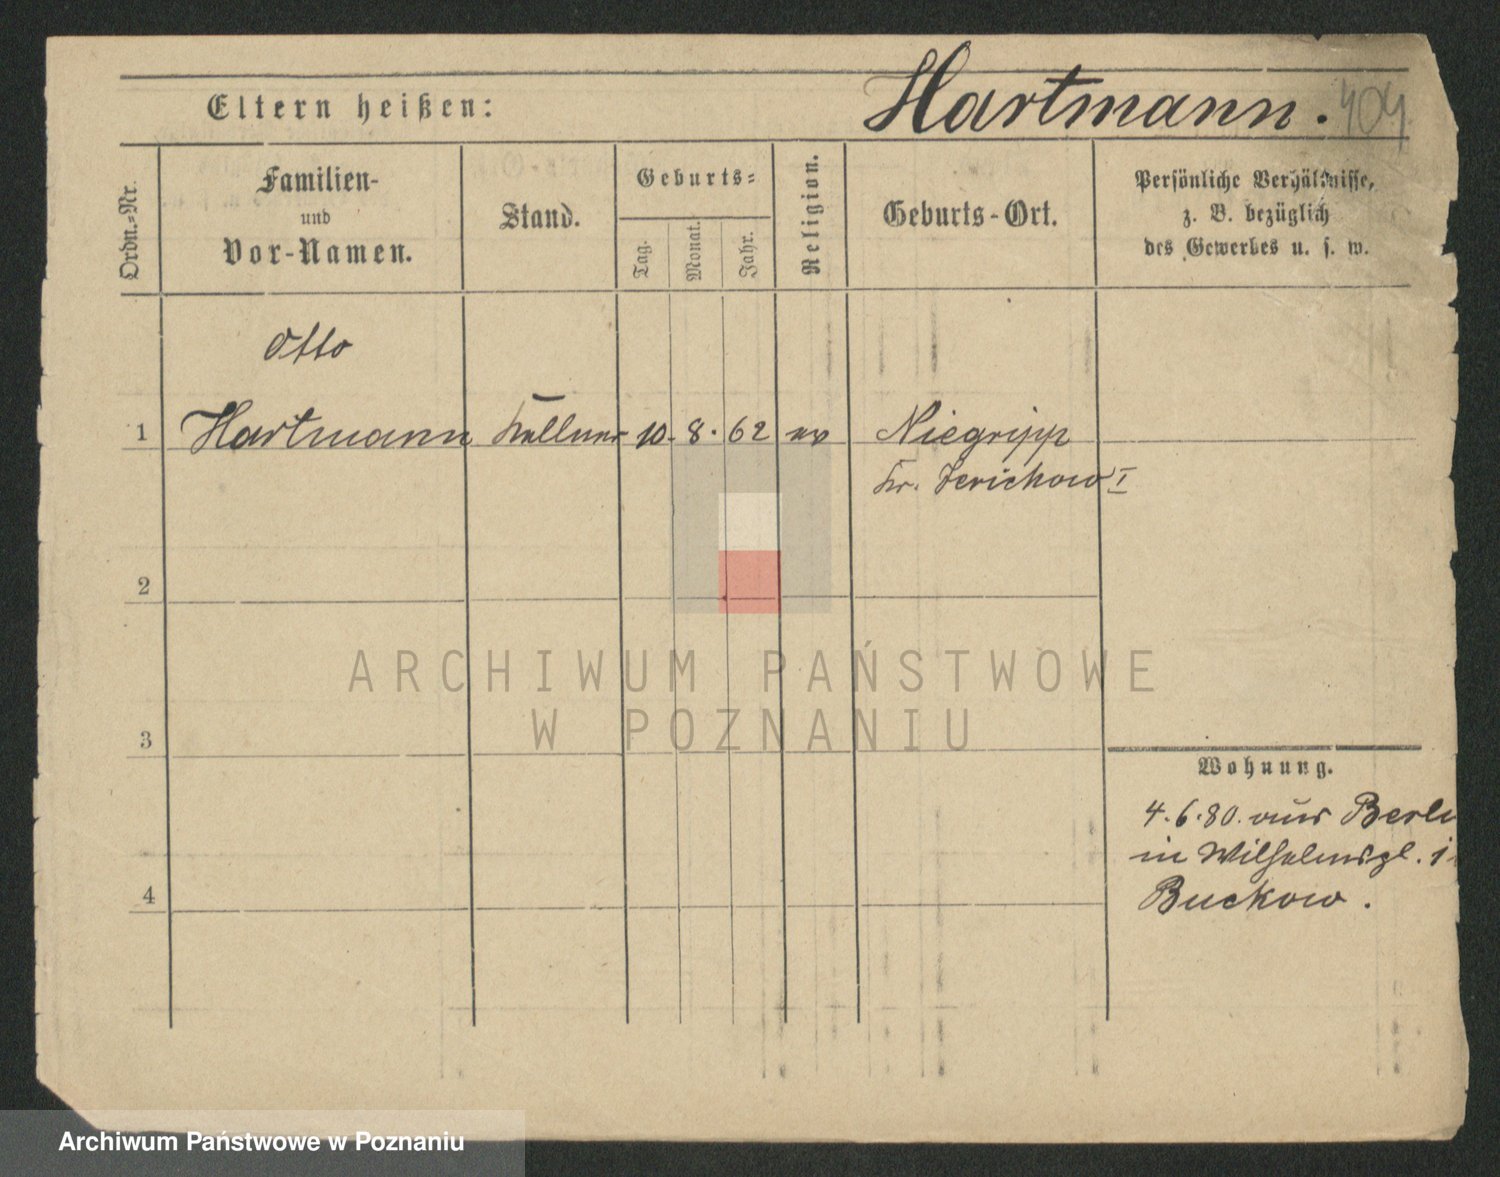 Eltern heißen:
Hartmann. 404
Ordn.=Nr.
Familien-
und
Vor-Namen.
Stand.
Geburts=
Tag.
Monat.
Jahr.
Religion.
Geburts-Ort.
Persönliche Verhältnisse,
z. B. bezüglich
des Gewerbes u. s. w.
Otto
1 Hartmann Kellner 10. 8. 62 ev Niegripp
Kr. Jerichow I
2
ARCHIWUM PAŃSTWOWE
W POZNANIU
3
Wohnung.
4.6.80. aus Berli
in Wilhelmspl. 1
Buckow.
4
Archiwum Państwowe w Poznaniu